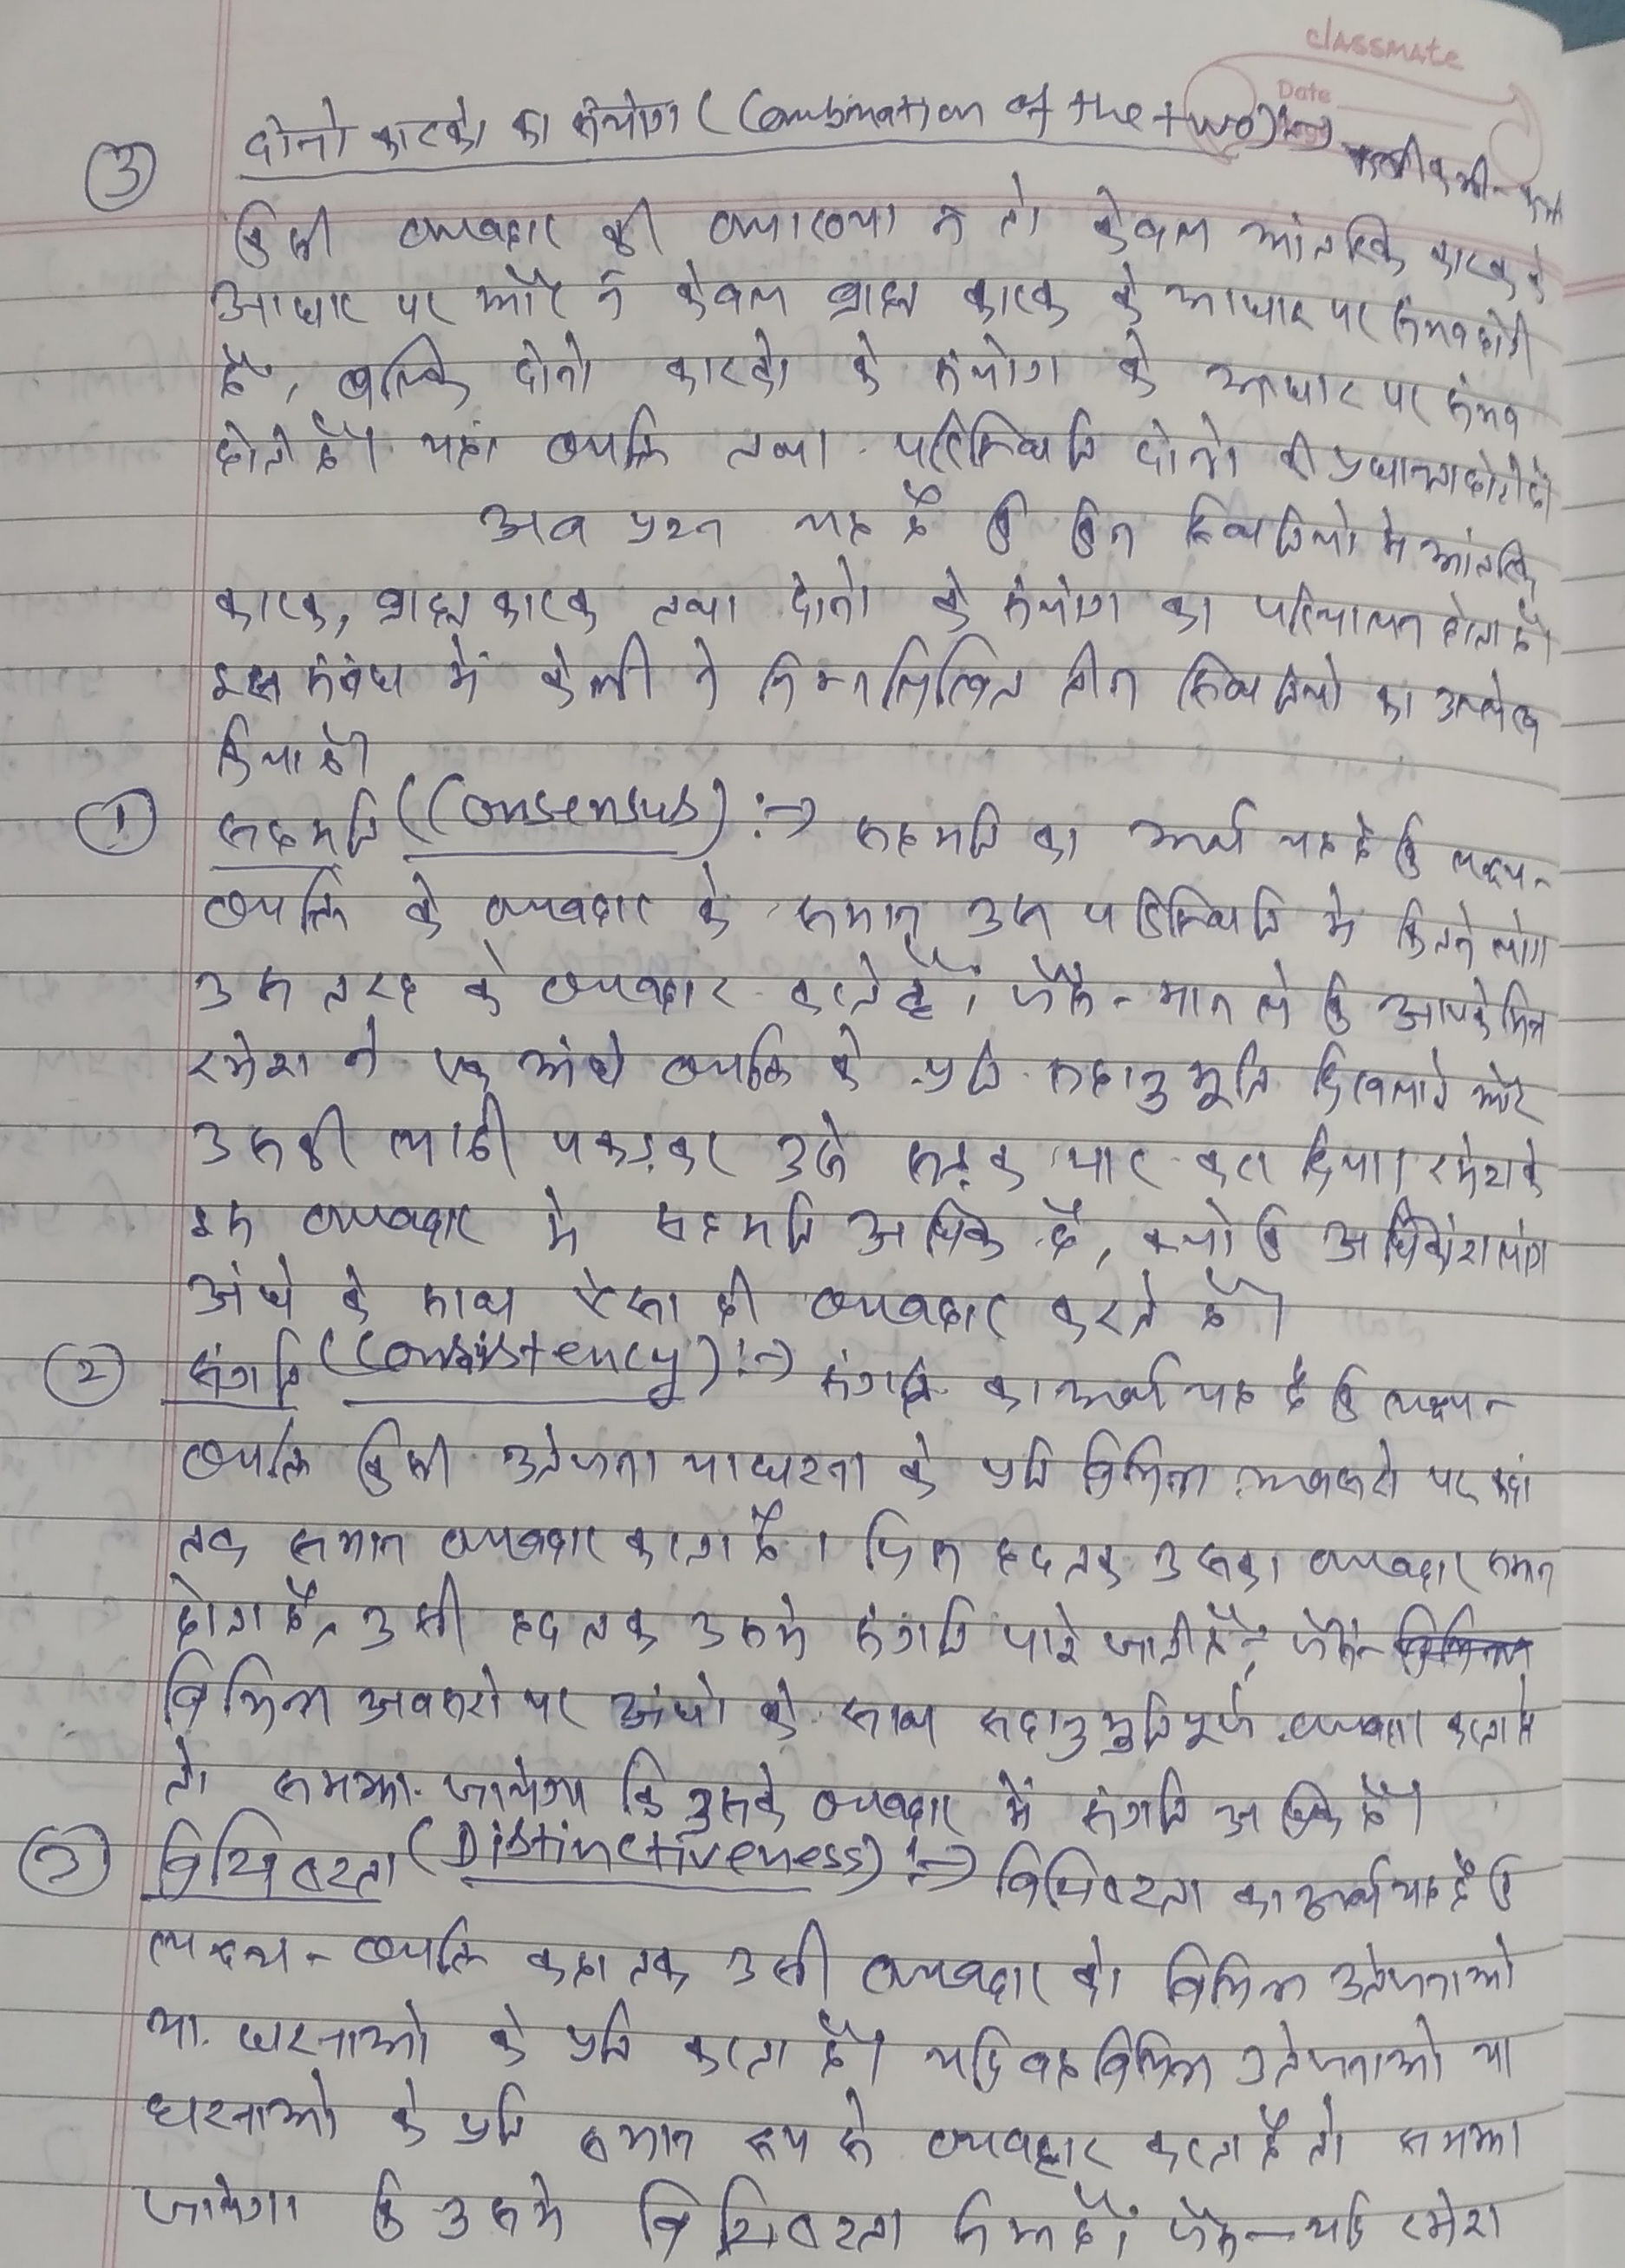 classmate
Date
③ दोनो कारको का संयोग (Combination of the two) :→ कभी-कभी
किसी व्यवहार की व्याख्या न तो केवल आंतरिक कारक के
आधार पर और न केवल बाह्य कारक के आधार पर संभव होती
है, बल्कि दोनो कारको के संयोग के आधार पर संभव
होती है। यहां व्यक्ति तथा परिस्थिति दोनो की प्रधानता होती है।
अब प्रश्न यह है कि किन स्थितियो मे आंतरिक
कारक, बाह्य कारक तथा दोनो के संयोग का परिचालन होता है।
इस संबंध में केली ने निम्नलिखित तीन स्थितियो का उल्लेख
किया है।
① सहमति (Consensus) :→ सहमति का अर्थ यह है कि लक्ष्य-
व्यक्ति के व्यवहार के समान उस परिस्थिति मे कितने लोग
उस तरह के व्यवहार करते हैं। जैसे - मान ले कि आपके मित्र
रमेश ने एक अंधे व्यक्ति के प्रति सहानुभूति दिखलाई और
उसकी लाठी पकड़कर उसे सड़क पार करा दिया। रमेश के
इस व्यवहार मे सहमति अधिक है, क्योकि अधिकांश लोग
अंधे के साथ ऐसा ही व्यवहार करते है।
② संगति (Consistency) :→ संगति का अर्थ यह है कि लक्ष्य-
व्यक्ति किसी उत्तेजना या घटना के प्रति विभिन्न अवसरो पर कहां
तक समान व्यवहार करता है। जिस हद तक उसका व्यवहार समान
होता है, उसी हद तक उसमे संगति पाई जाती है, जैसे-
विभिन्न अवसरो पर अंधो के साथ सहानुभूतिपूर्ण व्यवहार करता है
तो समझा जायेगा कि उसके व्यवहार में संगति अधिक है।
③ विशिष्टता (Distinctiveness) :→ विशिष्टता का अर्थ यह है कि
लक्ष्य-व्यक्ति कहा तक उसी व्यवहार को विभिन्न उत्तेजनाओ
या घटनाओ के प्रति करता है। यदि वह विभिन्न उत्तेजनाओ या
घटनाओ के प्रति समान रूप से व्यवहार करता है तो समझा
जायेगा कि उसमे विशिष्टता निम्न है। जैसे - यदि रमेश